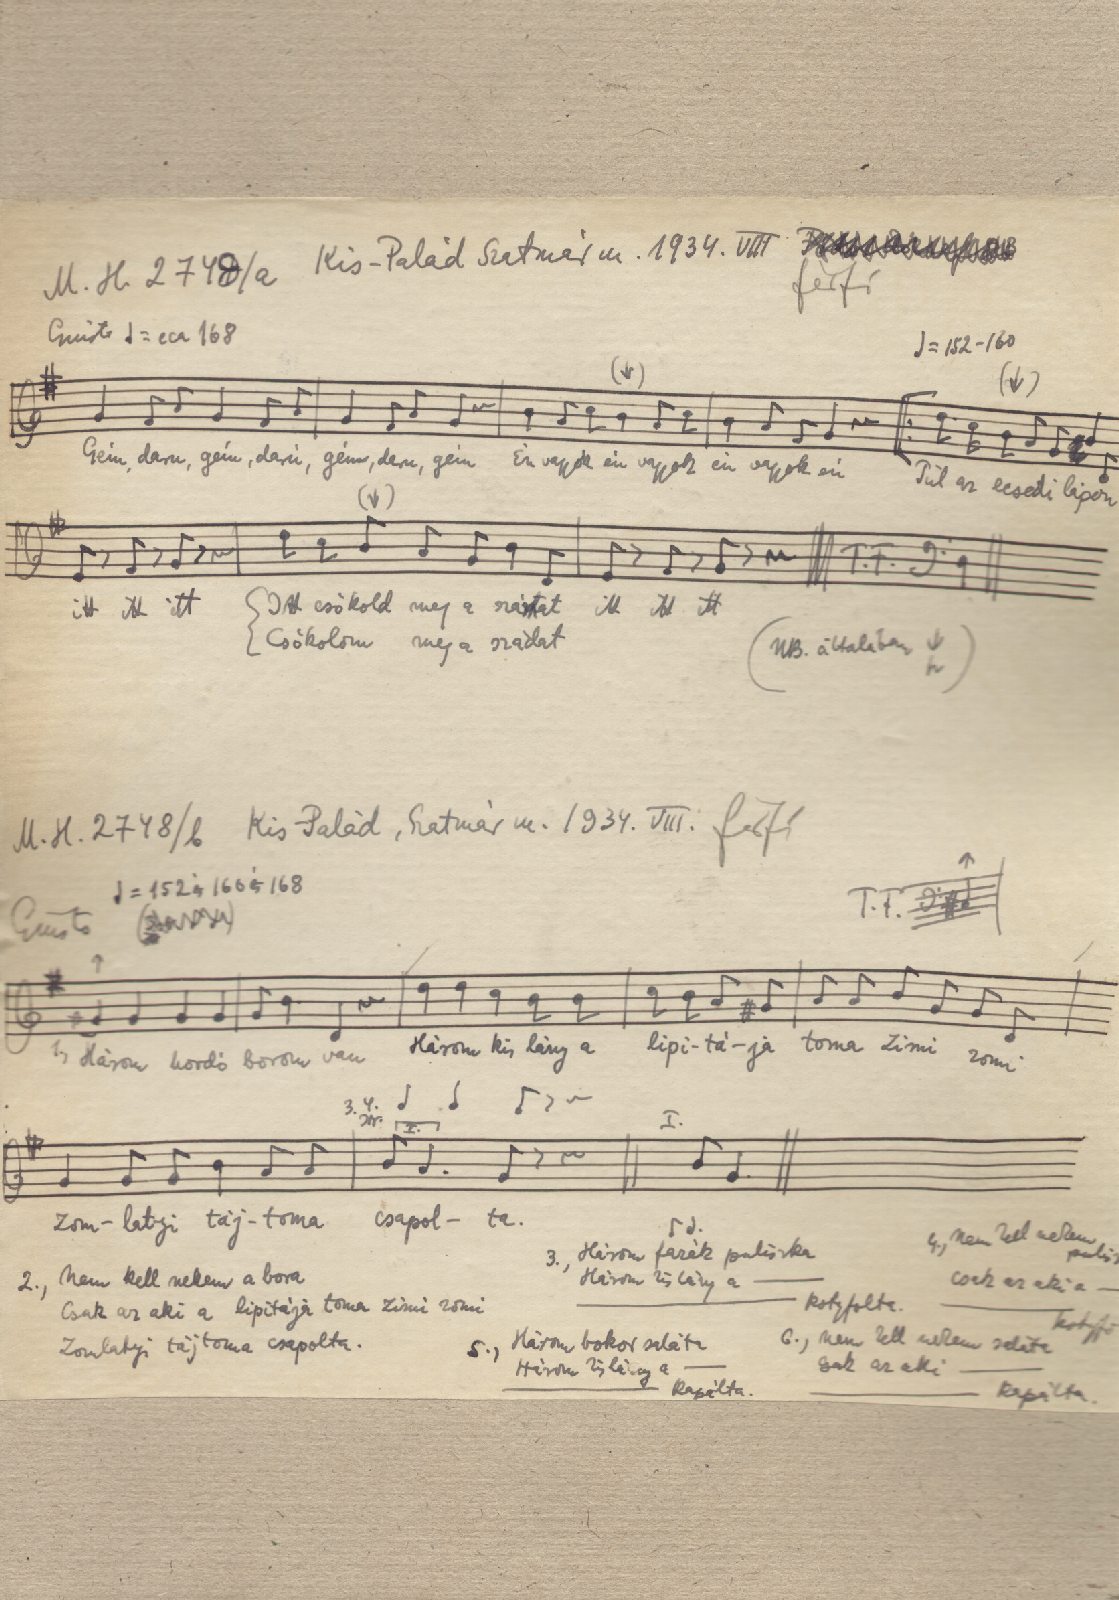 M. H. 2748/a Kis-Palád Szatmár m. 1934. VIII
férfi
Giusto ♩ = cca 168
♩ = 152-160
(↓) (↓)
Gém, daru, gém, daru, gém, daru, gém Én vagyok én vagyok én vagyok én Túl az ecsedi lápon
(↓)
itt itt itt { Itt csókold meg a szádat itt itt itt
Csókolom meg a szádat
T.F.
(NB. általában ↓)
M. H. 2748/b Kis-Palád, Szatmár m. 1934. VIII. férfi
♩ = 152 és 160 és 168
Giusto
T.F.
Három hordó borom van Három kis lány a lipi-tá-já toma zimi zomi
3. 4. str.
I. I.
Zom-latyi táj-toma csapol-ta.
2., Nem kell nekem a bora
Csak az aki a lipitájá toma zimi zomi
Zomlatyi tájtoma csapolta.
3., Három fazék puliszka
Három kislány a ——
—— kotyfolta.
4., Nem kell nekem
csak az aki a —
5., Három bokor saláta
Három kislány a ——
—— kapálta.
6., Nem kell nekem saláta
csak az aki ——
—— kapálta.